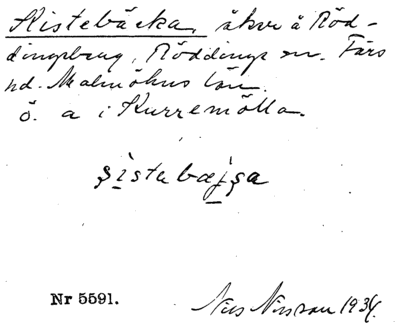 Kistebäcka, åkrar å Röd-
dingsberg, Röddinge sn. Färs
hd. Malmöhus län.
ö. a i Kurremölla.
şistabæjşa
Nr 5591.
Nils Nilsson 1934.